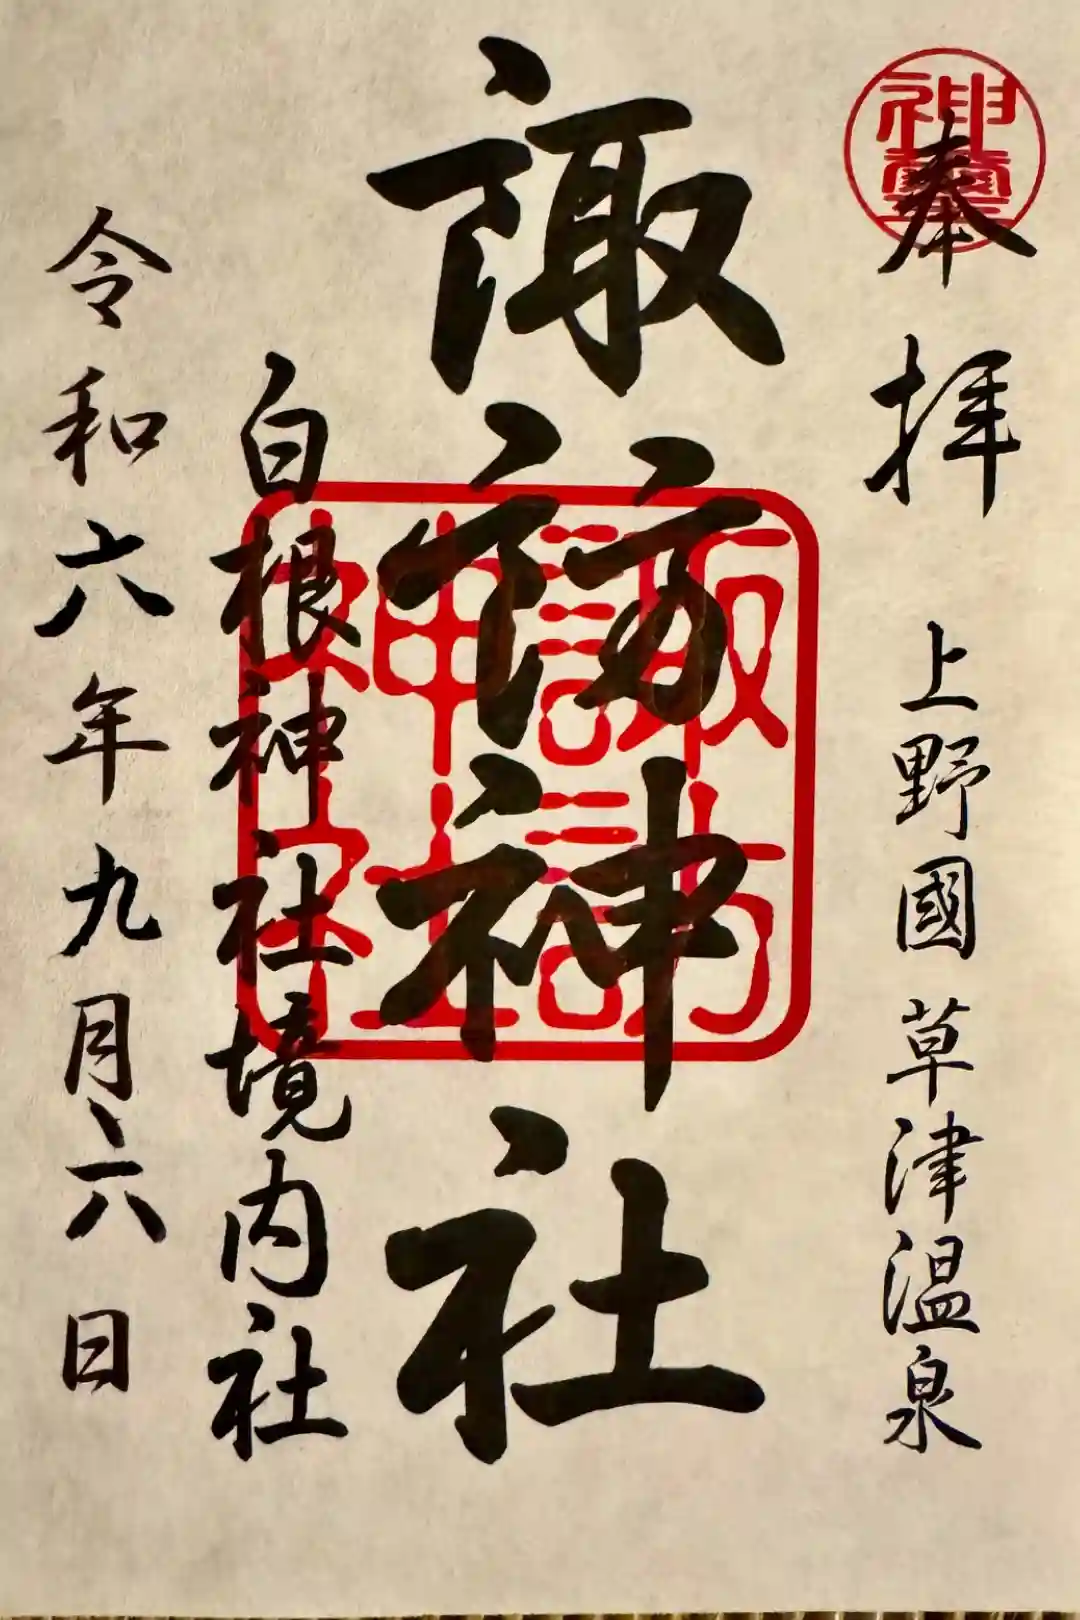 奉拝
上野國 草津温泉
諏訪神社
白根神社境内社
令和六年九月六日
諏訪
神社